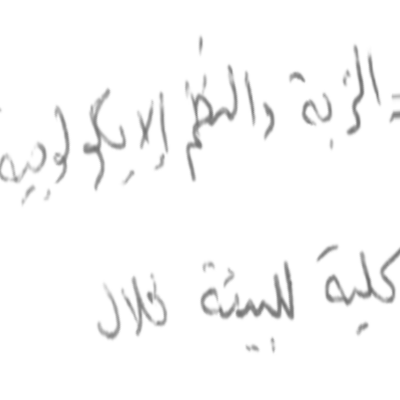 التربة والنظم الايكولوجية
كلية للبيئة خلال